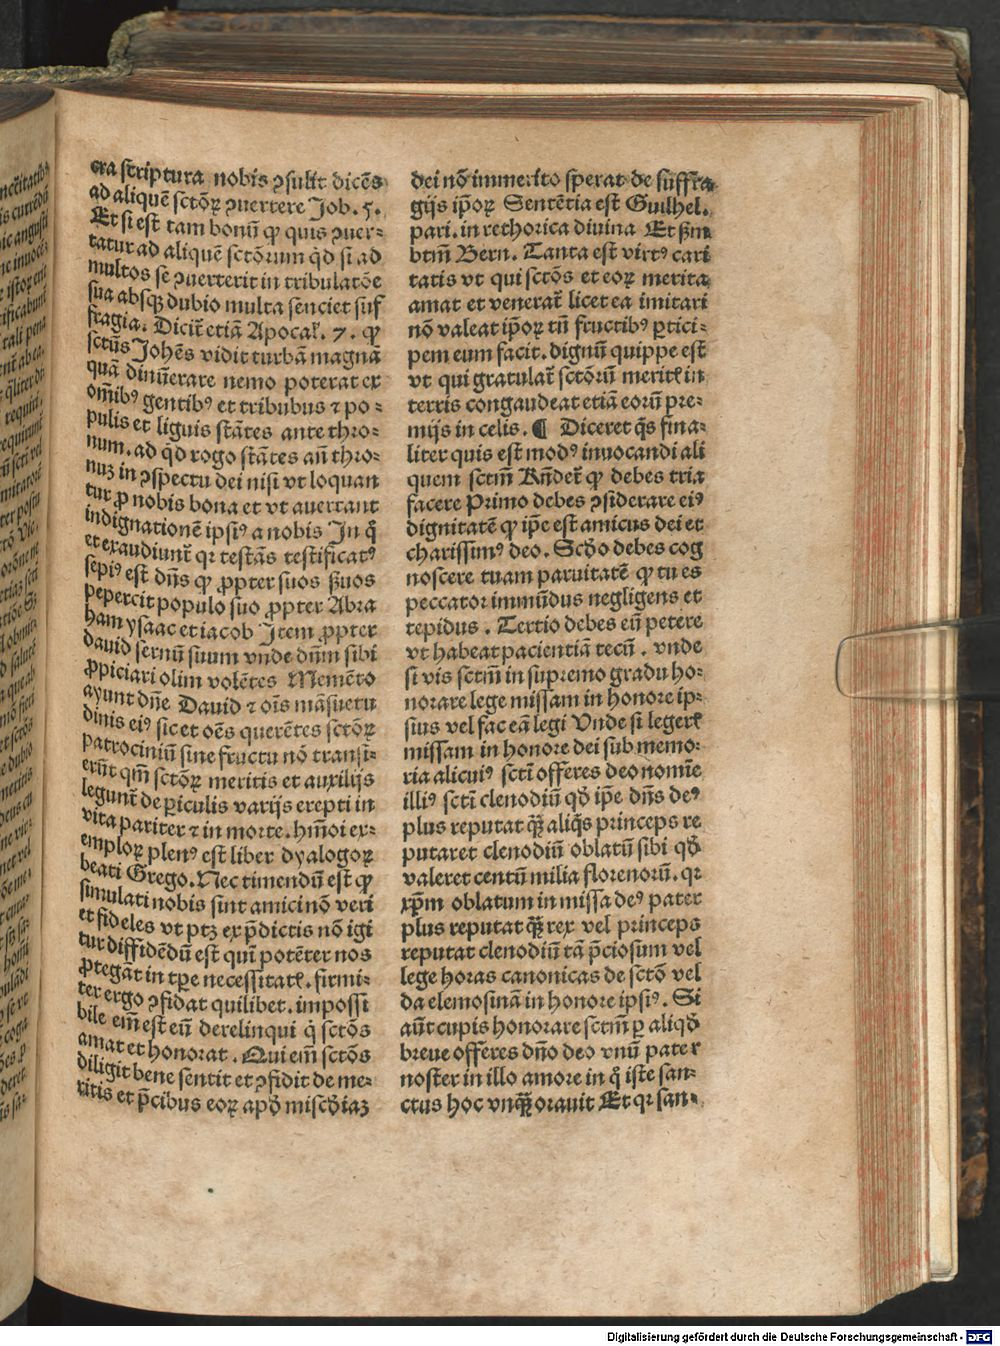 cra scriptura nobis ꝯsulit dicēs
ad aliquē sctōꝝ ꝯuertere Job. 5.
Et si est tam bonū ꝙ quis ꝯuer-
tatur ad aliquē sctōrum qđ si ad
multos se ꝯuerterit in tribulatōe
sua absqꝫ dubio multa senciet suf
fragia. Dicit̄ etiā Apocal̄. 7. ꝙ
sctūs Johēs vidit turbā magnā
quā dinūerare nemo poterat ex
om̄ibꝰ gentibꝰ et tribubus ⁊ po-
pulis et liguis stātes ante thro-
num. ad qđ rogo stātes an̄ thro-
nuꝫ in ꝯspectu dei nisi vt loquan
tur ꝓ nobis bona et vt auertant
indignationē ipsiꝰ a nobis In q̊
et exaudiunt̄ qꝛ testās testificatꝰ
sepiꝰ est dn̄s ꝙ ꝓpter suos ẜuos
pepercit populo suo ꝓpter Abra
ham ysaac et iacob Item ꝓpter
dauid seruū suum vnde dn̄m sibi
ꝓpiciari olim volētes Memēto
ayunt dn̄e Dauid ⁊ oīs māsuetu
dinis eiꝰ sic et oēs querētes sctōꝝ
patrociniū sine fructu nō transi-
erūt qm̄ sctōꝝ meritis et auxilijs
legunt̄ de ꝑiculis varijs erepti in
vita pariter ⁊ in morte. hmōi ex-
emploꝝ plenꝰ est liber dyalogoꝝ
beati Grego. Nec timendū est ꝙ
simulati nobis sint amici nō veri
et fideles vt ptꝫ ex p̄dictis nō igi
tur diffidēdū est qui potēter nos
ꝓtegāt in tꝑe necessitatꝭ. firmi-
ter ergo ꝯfidat quilibet. impossi
bile em̄ est eū derelinqui q̇ sctōs
amat et honorat. Qui em̄ sctōs
diligit bene sentit et ꝯfidit de me-
ritis et p̄cibus eoꝝ apđ misc̄diaꝫ
dei nō immerito sperat de suffra
gijs ip̄oꝝ Sentētia est Guilhel.
pari. in rethorica diuina Et ẜm
btm̄ Bern. Tanta est virtꝰ cari
tatis vt qui sctōs et eoꝝ merita
amat et venerat̄ licet ea imitari
nō valeat ip̄oꝝ tn̄ fructibꝰ ꝑtici-
pem eum facit. dignū quippe est
vt qui gratulat̄ sctōrū meritꝭ in
terris congaudeat etiā eorū pre-
mijs in celis. ¶ Diceret q̄s fina-
liter quis est modꝰ inuocandi ali
quem sctm̄ Rn̄det̄ ꝙ debes tria
facere Primo debes ꝯsiderare eiꝰ
dignitatē ꝙ ip̄e est amicus dei et
charissimꝰ deo. Scđo debes cog
noscere tuam paruitatē ꝙ tu es
peccator immūdus negligens et
tepidus. Tertio debes eū petere
vt habeat pacientiā tecū. vnde
si vis sctm̄ in supremo gradu ho-
norare lege missam in honore ip-
sius vel fac eā legi Vnde si legerꝭ
missam in honore dei sub memo-
ria alicuiꝰ sctī offeres deo nomīe
illiꝰ sctī clenodiū qđ ip̄e dn̄s deꝰ
plus reputat qꝫ̄ aliq̄s princeps re
putaret clenodiū oblatū sibi qđ
valeret centū milia florenorū. qꝛ
xp̄m oblatum in missa deꝰ pater
plus reputat qꝫ̄ rex vel princeps
reputat clenodiū tā p̄ciosum vel
lege horas canonicas de sctō vel
da elemosinā in honore ipsiꝰ. Si
aūt cupis honorare sctm̄ ꝑ aliqđ
breue offeres dn̄o deo vnū pater
noster in illo amore in q̊ iste san-
ctus hoc vnqꝫ̄ orauit Et qꝛ san-
Digitalisierung gefördert durch die Deutsche Forschungsgemeinschaft - DFG